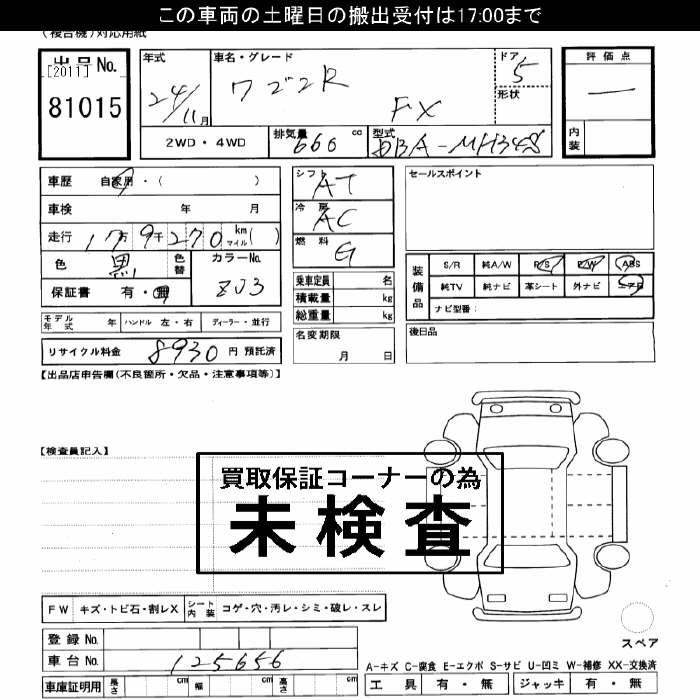 この車両の土曜日の搬出受付は17:00まで
(複合機)対応用紙
出品No.
[2011]
81015
年式
24/11月
車名・グレード
ワゴンR
FX
ドア
5
形状
評価点
―
内装
2WD・4WD
排気量 660 cc
型式 DBA-MH34S
車歴 自家用・( )
車検 年 月
走行 17万9千270 km マイル( )
色 黒 色替
カラーNo.
ZJ3
保証書 有・無
シフト AT
冷房 AC
燃料 G
乗車定員 名
積載量 kg
総重量 kg
名変期限
月 日
セールスポイント
装備品
S/R 純A/W P/S P/W ABS
純TV 純ナビ 革シート 外ナビ エアB
ナビ型番:
後日品
モデル年式 年 ハンドル 左・右 ディーラー・並行
リサイクル料金 8930 円 預託済
【出品店申告欄(不良箇所・欠品・注意事項等)】
【検査員記入】
買取保証コーナーの為
未検査
FW キズ・トビ石・割レX シート内装 コゲ・穴・汚レ・シミ・破レ・スレ
登録No.
車台No. 125656
車庫証明用 長さ cm 幅 cm 高さ cm
スペア
A-キズ C-腐食 E-エクボ S-サビ U-凹ミ W-補修 XX-交換済
工具 有・無 ジャッキ 有・無